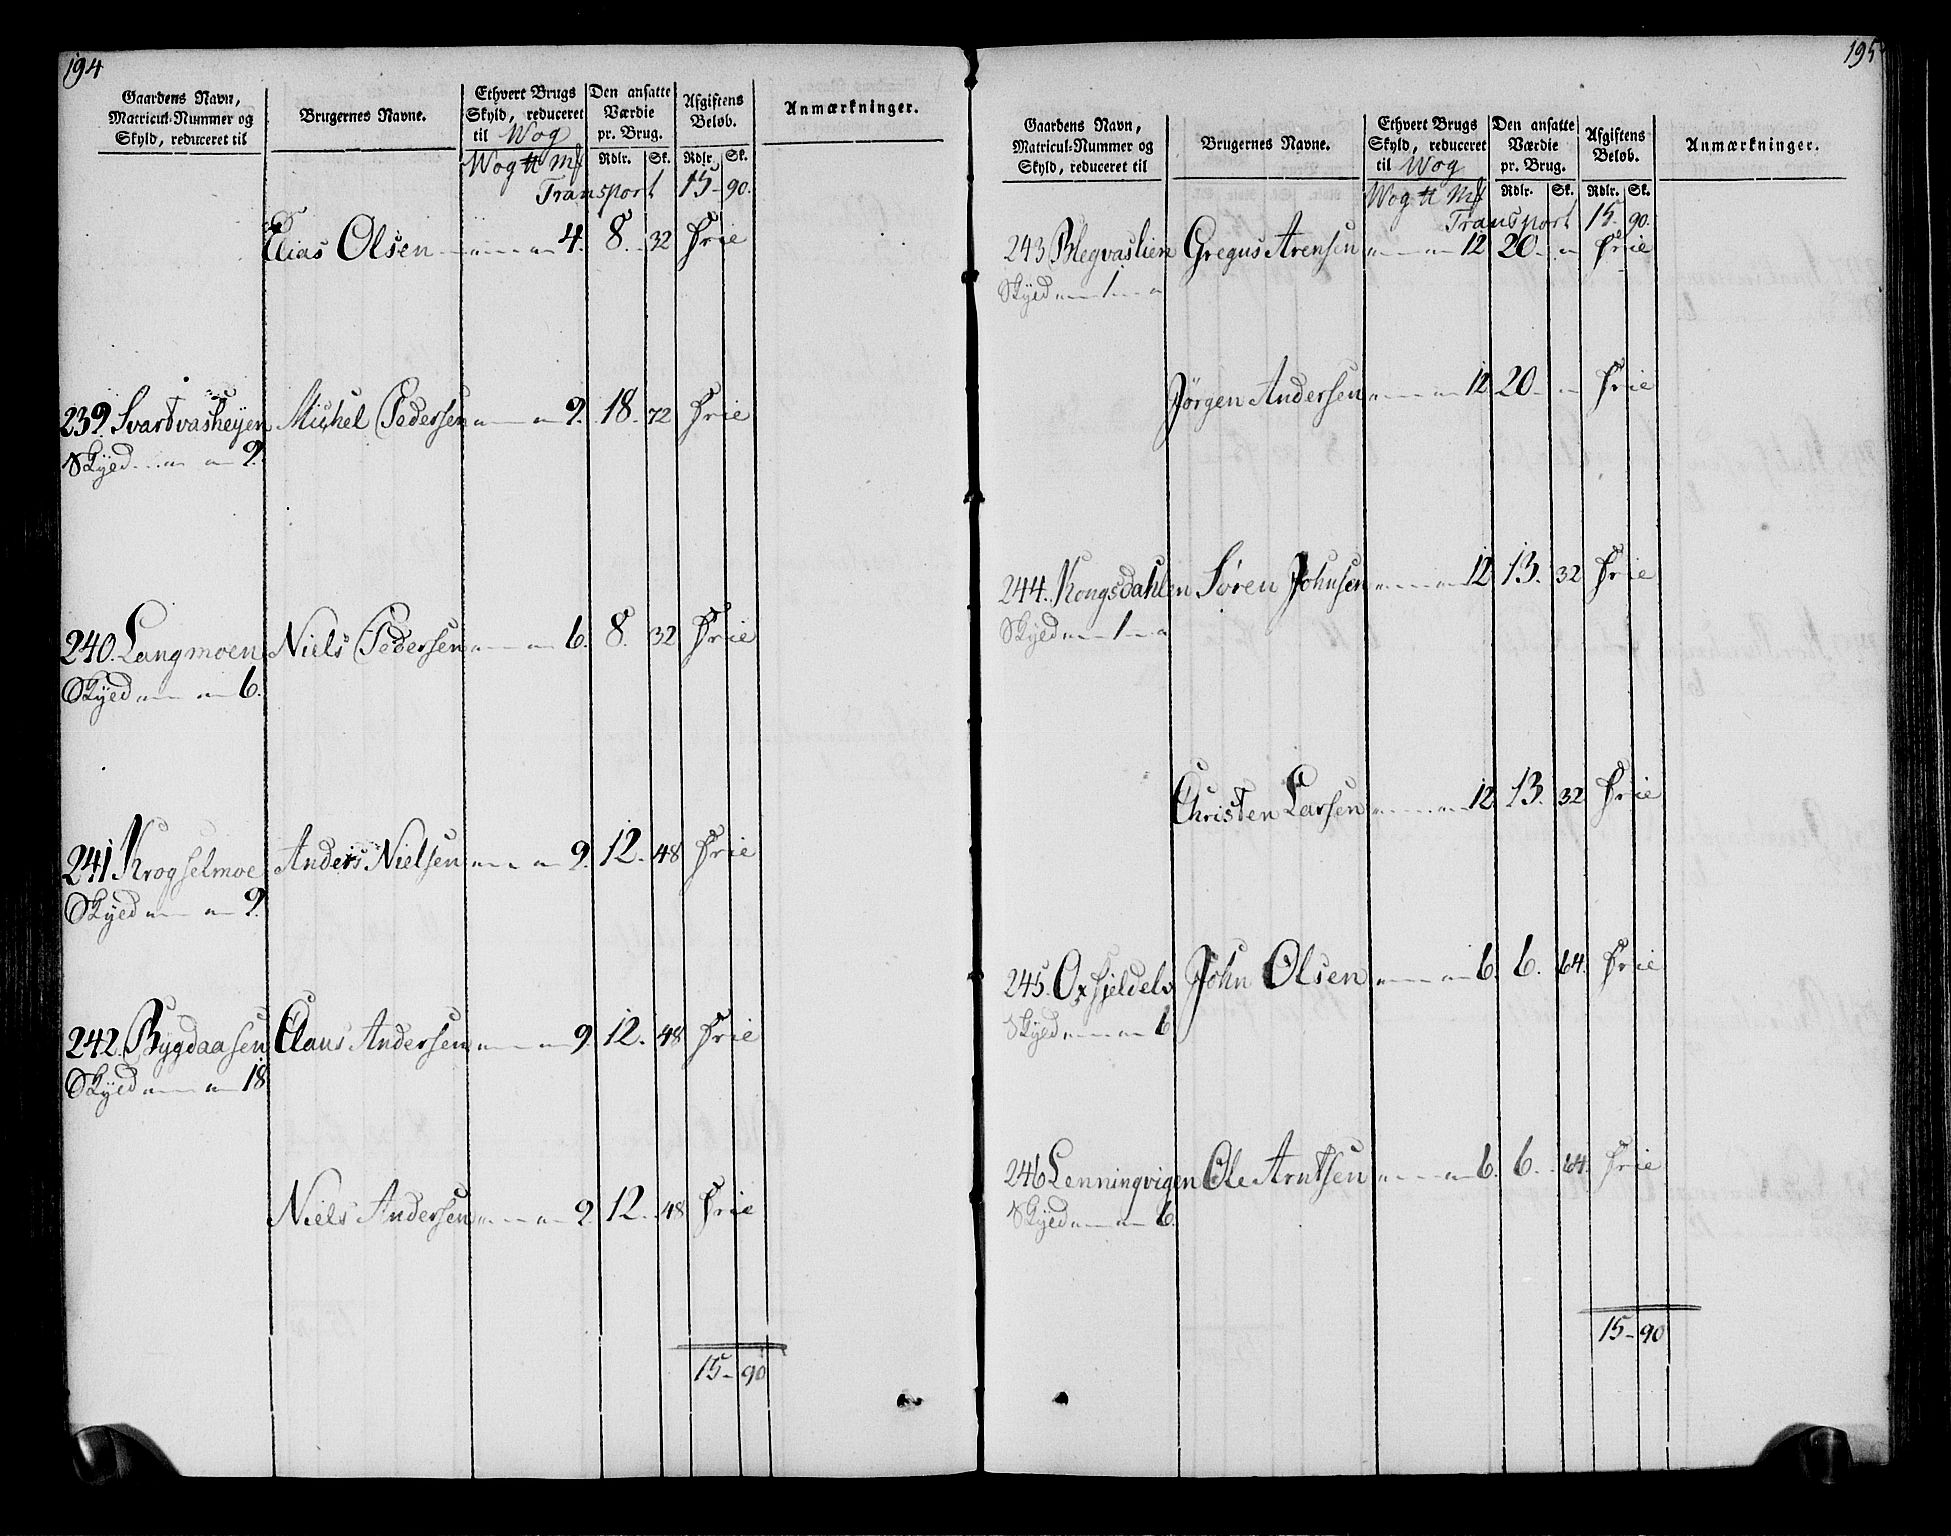 194
Gaardens Navn, Matricul-Nummer og Skyld, reduceret til
Brugernes Navne.
Ethvert Brugs Skyld, reduceret til Wog
Den ansatte Værdie pr. Brug.
Afgiftens Beløb.
Anmærkninger.
Wog ℔ M℔ Rdlr. Sk. Rdlr. Sk.
Transport 15 - 90.
Elias Olsen „ — „ — „ 4. 8. 32 Frie
239. Svartvasheyen Michel Pedersen „ — „ 9. 18. 72 Frie
Skyld „ — „ 9.
240. Langmoen Niels Pedersen „ — „ 6. 8. 32 Frie
Skyld „ — „ 6.
241 Krogselmoe Anders Nielsen „ — „ 9. 12. 48 Frie
Skyld „ — „ 9.
242. Bygdaasen Claus Andersen „ — „ 9. 12. 48 Frie
Skyld „ — „ 18
Niels Andersen „ — „ 9. 12. 48 Frie
15 - 90
195
Gaardens Navn, Matricul-Nummer og Skyld, reduceret til
Brugernes Navne.
Ethvert Brugs Skyld, reduceret til Wog
Den ansatte Værdie pr. Brug.
Afgiftens Beløb.
Anmærkninger.
Wog ℔ M℔ Rdlr. Sk. Rdlr. Sk.
Transport 15 - 90.
243 Blegvaslien Gregus Arensen „ — „ 12 20 - „ Frie
Skyld „ — 1 — „
Jörgen Andersen „ — „ 12 20 - „ Frie
244. Kongsdahlen Sören Johnsen „ — „ 12 13. 32 Frie
Skyld „ — 1 — „
Christen Larsen „ — „ 12 13. 32 Frie
245. Oxfjeldelv John Olsen „ — „ 6. 6. 64. Frie
Skyld „ — „ 6
246 Lenningvigen Ole Arntsen „ — „ 6. 6. 64. Frie
Skyld „ — „ 6.
15 - 90